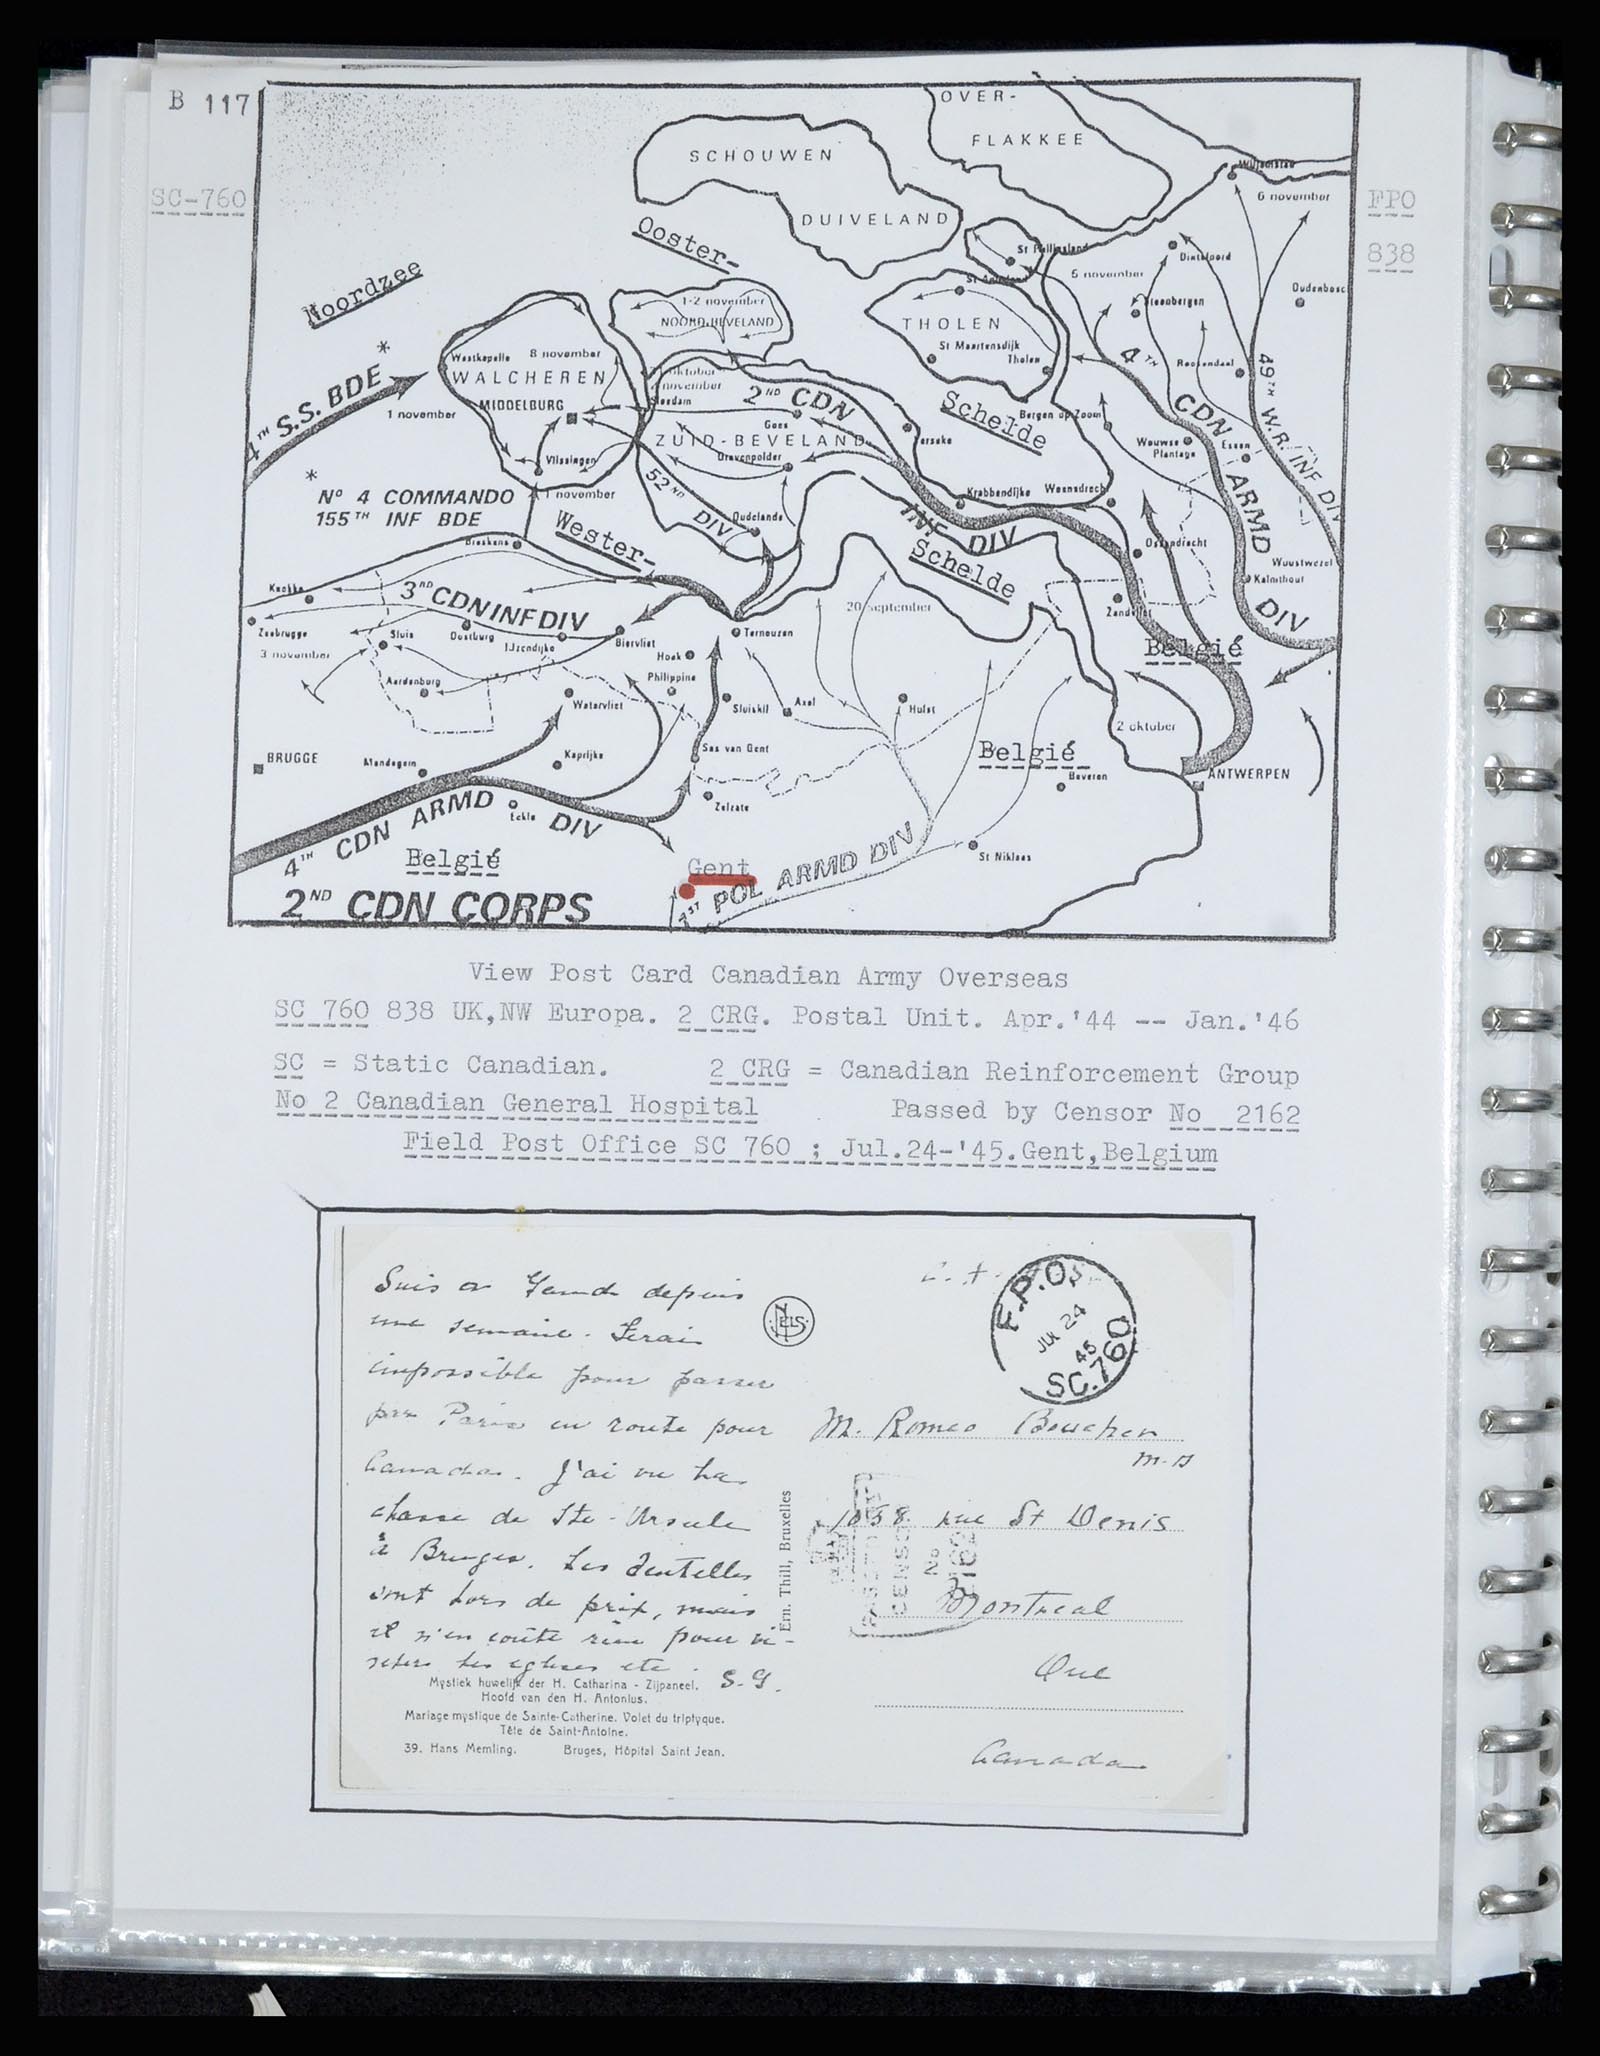 B 117
SC-760
FPO
838
OVER-
FLAKKEE
SCHOUWEN
DUIVELAND
Willemstad
6 november
Ooster-
Noordzee
St Philipsland
5 november
Dinteloord
Oudenbosc
St Annaland
Steenbergen
1-2 november
NOORD-BEVELAND
THOLEN
St Maartensdijk
Tholen
Roosendaal
Westkapelle
8 november
WALCHEREN
4TH S.S. BDE *
1 november
MIDDELBURG
2ND CDN
Goes
ZUID-BEVELAND
Schelde
Bergen op Zoom
Wouwse
Plantage
Essen
4TH CDN ARMD DIV
49TH W.R. INF DIV
Vlissingen
1 november
*
No 4 COMMANDO
155TH INF BDE
52ND DIV
Oudelande
Krabbendijke
Woensdrecht
Wester-
INF DIV
Schelde
Ossendrecht
Wuustwezel
Kalmthout
Breskens
Knokke
3RD CDN INF DIV
20 september
Zandvliet
Zeebrugge
3 november
Sluis
Oostburg
IJzendijke
Biervliet
Terneuzen
België
Hoek
Aardenburg
Philippine
Watervliet
Sluiskil
Axel
Hulst
2 oktober
BRUGGE
Maldegem
Kaprijke
Sas van Gent
België
Beveren
ANTWERPEN
Zelzate
Eeklo
4TH CDN ARMD DIV
België
St Niklaas
Gent
1ST POL ARMD DIV
2ND CDN CORPS
View Post Card Canadian Army Overseas
SC 760 838 UK,NW Europa. 2 CRG. Postal Unit. Apr.'44 -- Jan.'46
SC = Static Canadian. 2 CRG = Canadian Reinforcement Group
No 2 Canadian General Hospital Passed by Censor No 2162
Field Post Office SC 760 ; Jul.24-'45.Gent,Belgium
Suis à Gand depuis
une semaine. Serai
impossible pour passer
par Paris en route pour
Canada. J'ai vu la
chasse de Ste-Ursule
à Bruges. Les dentelles
sont hors de prix, mais
il n'en coûte rien pour vi-
siter les églises etc. S.G.
NELS
F.P.O.
JUL 24
45
SC.760
M. Romeo Boucher
M.D
1058 rue St Denis
Montreal
Que
Canada
PASSED
CENSO
No
2162
Ern. Thill, Bruxelles
Mystiek huwelijk der H. Catharina - Zijpaneel.
Hoofd van den H. Antonius.
Mariage mystique de Sainte-Catherine. Volet du triptyque.
Tête de Saint-Antoine.
39. Hans Memling. Bruges, Hôpital Saint Jean.